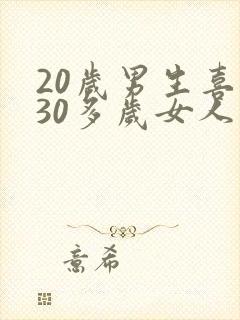 20歲男生喜
30多歲女人
意希